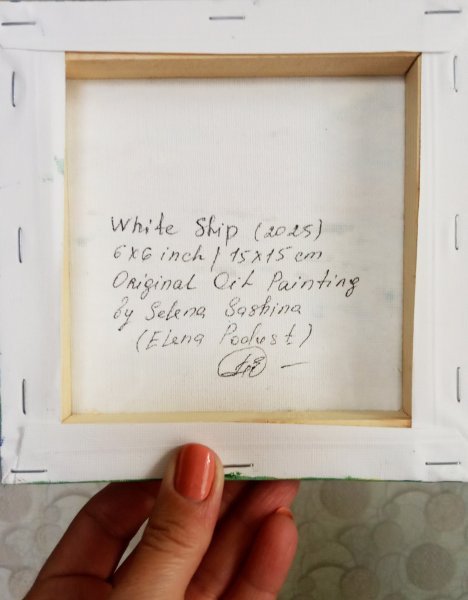 White Ship (2025)
6x6 inch / 15x15 cm
Original Oil Painting
by Selena Sashina
(Elena Podust)